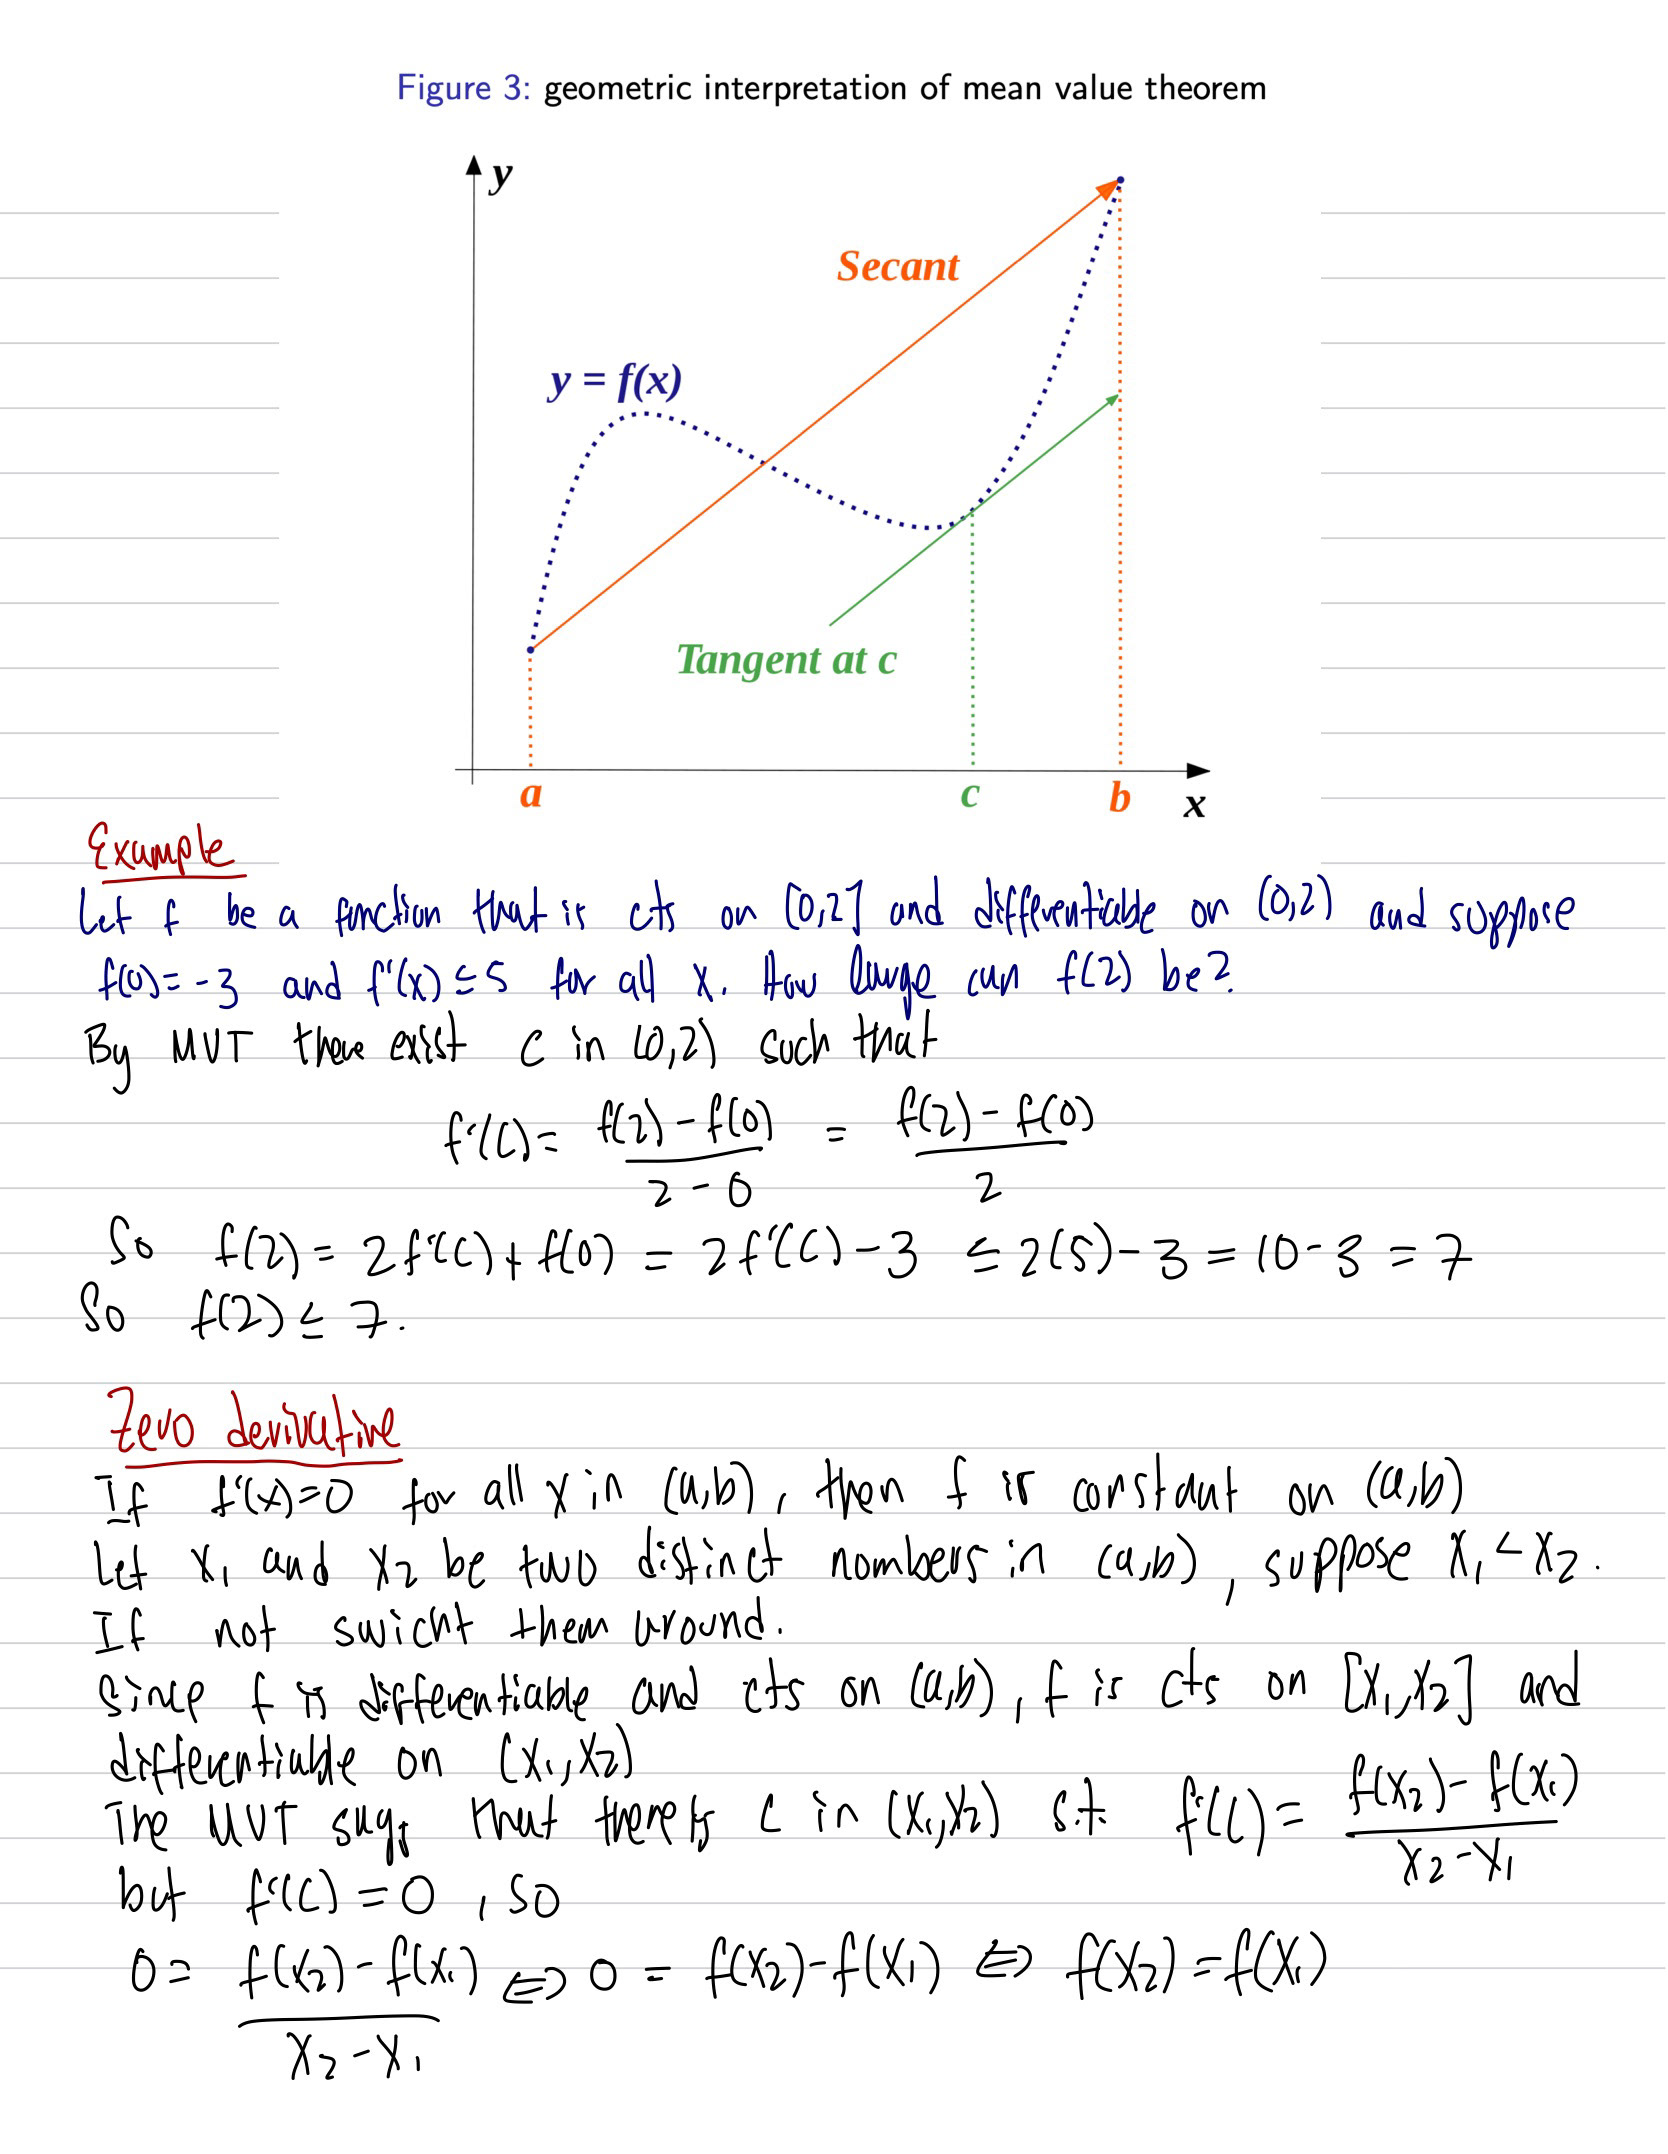 Figure 3: geometric interpretation of mean value theorem
y
Secant
y = f(x)
Tangent at c
a
c
b
x
Example
Let f be a function that is cts on [0,2] and differentiable on (0,2) and suppose
f(0) = -3 and f'(x) ≤ 5 for all x. How large can f(2) be?
By MVT there exist c in (0,2) such that
f'(c) = f(2) - f(0) / 2 - 0 = f(2) - f(0) / 2
So f(2) = 2f'(c) + f(0) = 2f'(c) - 3 ≤ 2(5) - 3 = 10 - 3 = 7
So f(2) ≤ 7.
Zero derivative
If f'(x) = 0 for all x in (a,b), then f is constant on (a,b)
Let x₁ and x₂ be two distinct numbers in (a,b), suppose x₁ < x₂.
If not swicht them around.
Since f is differentiable and cts on (a,b), f is cts on [x₁,x₂] and
differentiable on (x₁,x₂)
The MVT says that there is c in (x₁,x₂) s.t. f'(c) = f(x₂) - f(x₁) / x₂ - x₁
but f'(c) = 0, so
0 = f(x₂) - f(x₁) / x₂ - x₁ ⇔ 0 = f(x₂) - f(x₁) ⇔ f(x₂) = f(x₁)